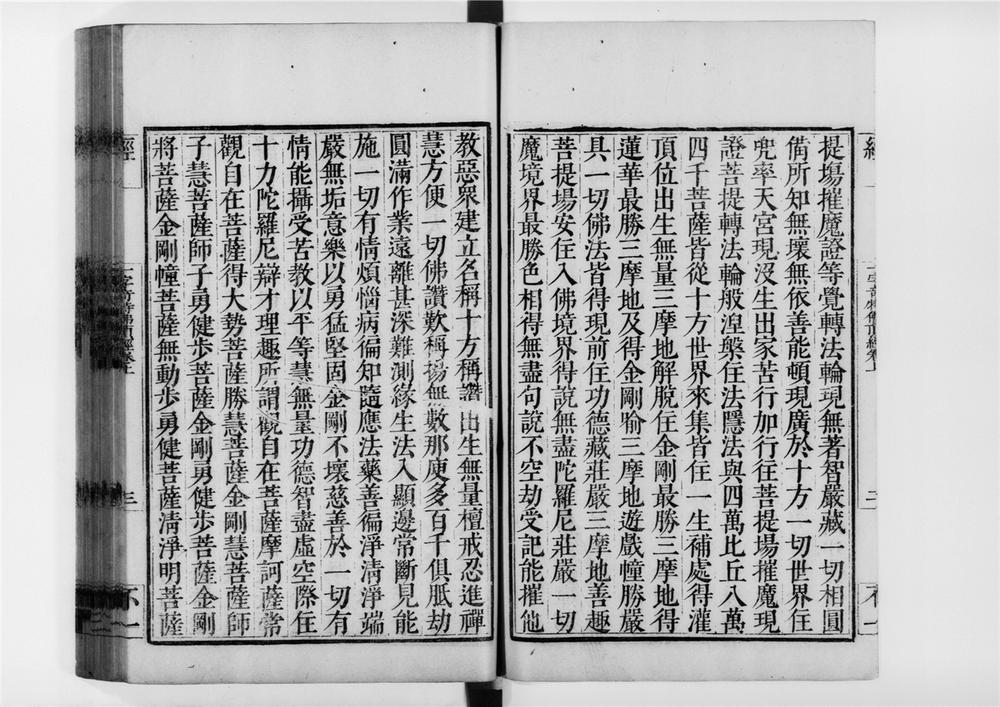 提場摧魔證等覺轉法輪現無著智嚴藏一切相圓
備所知無壞無依善能頓現廣於十方一切世界住
兜率天宮現沒生出家苦行加行往菩提場摧魔現
證菩提轉法輪般涅槃住法隱法與四萬比丘八萬
四千菩薩皆從十方世界來集皆住一生補處得灌
頂位出生無量三摩地解脫住金剛最勝三摩地得
蓮華最勝三摩地及得金剛喻三摩地遊戲幢勝嚴
具一切佛法皆得現前住功德藏莊嚴三摩地善趣
菩提場安住入佛境界得說無盡陀羅尼莊嚴一切
魔境界最勝色相得無盡句說不空劫受記能摧他
經
一字奇特佛頂經卷上
三
教惡眾建立名稱十方稱讚出生無量檀戒忍進禪
慧方便一切佛讚歎稱揚無數那庾多百千俱胝劫
圓滿作業遠離甚深難測緣生法入顯邊常斷見能
施一切有情煩惱病徧知隨應法藥善徧淨清淨端
嚴無垢意樂以勇猛堅固金剛不壞慈善於一切有
情能攝受苦教以平等慧無量功德智盡虛空際住
十力陀羅尼辯才理趣所謂觀自在菩薩摩訶薩常
觀自在菩薩得大勢菩薩勝慧菩薩金剛慧菩薩師
子慧菩薩師子勇健步菩薩金剛勇健步菩薩金剛
將菩薩金剛幢菩薩無動步勇健菩薩清淨明菩薩
經
一字奇特佛頂經卷上
三